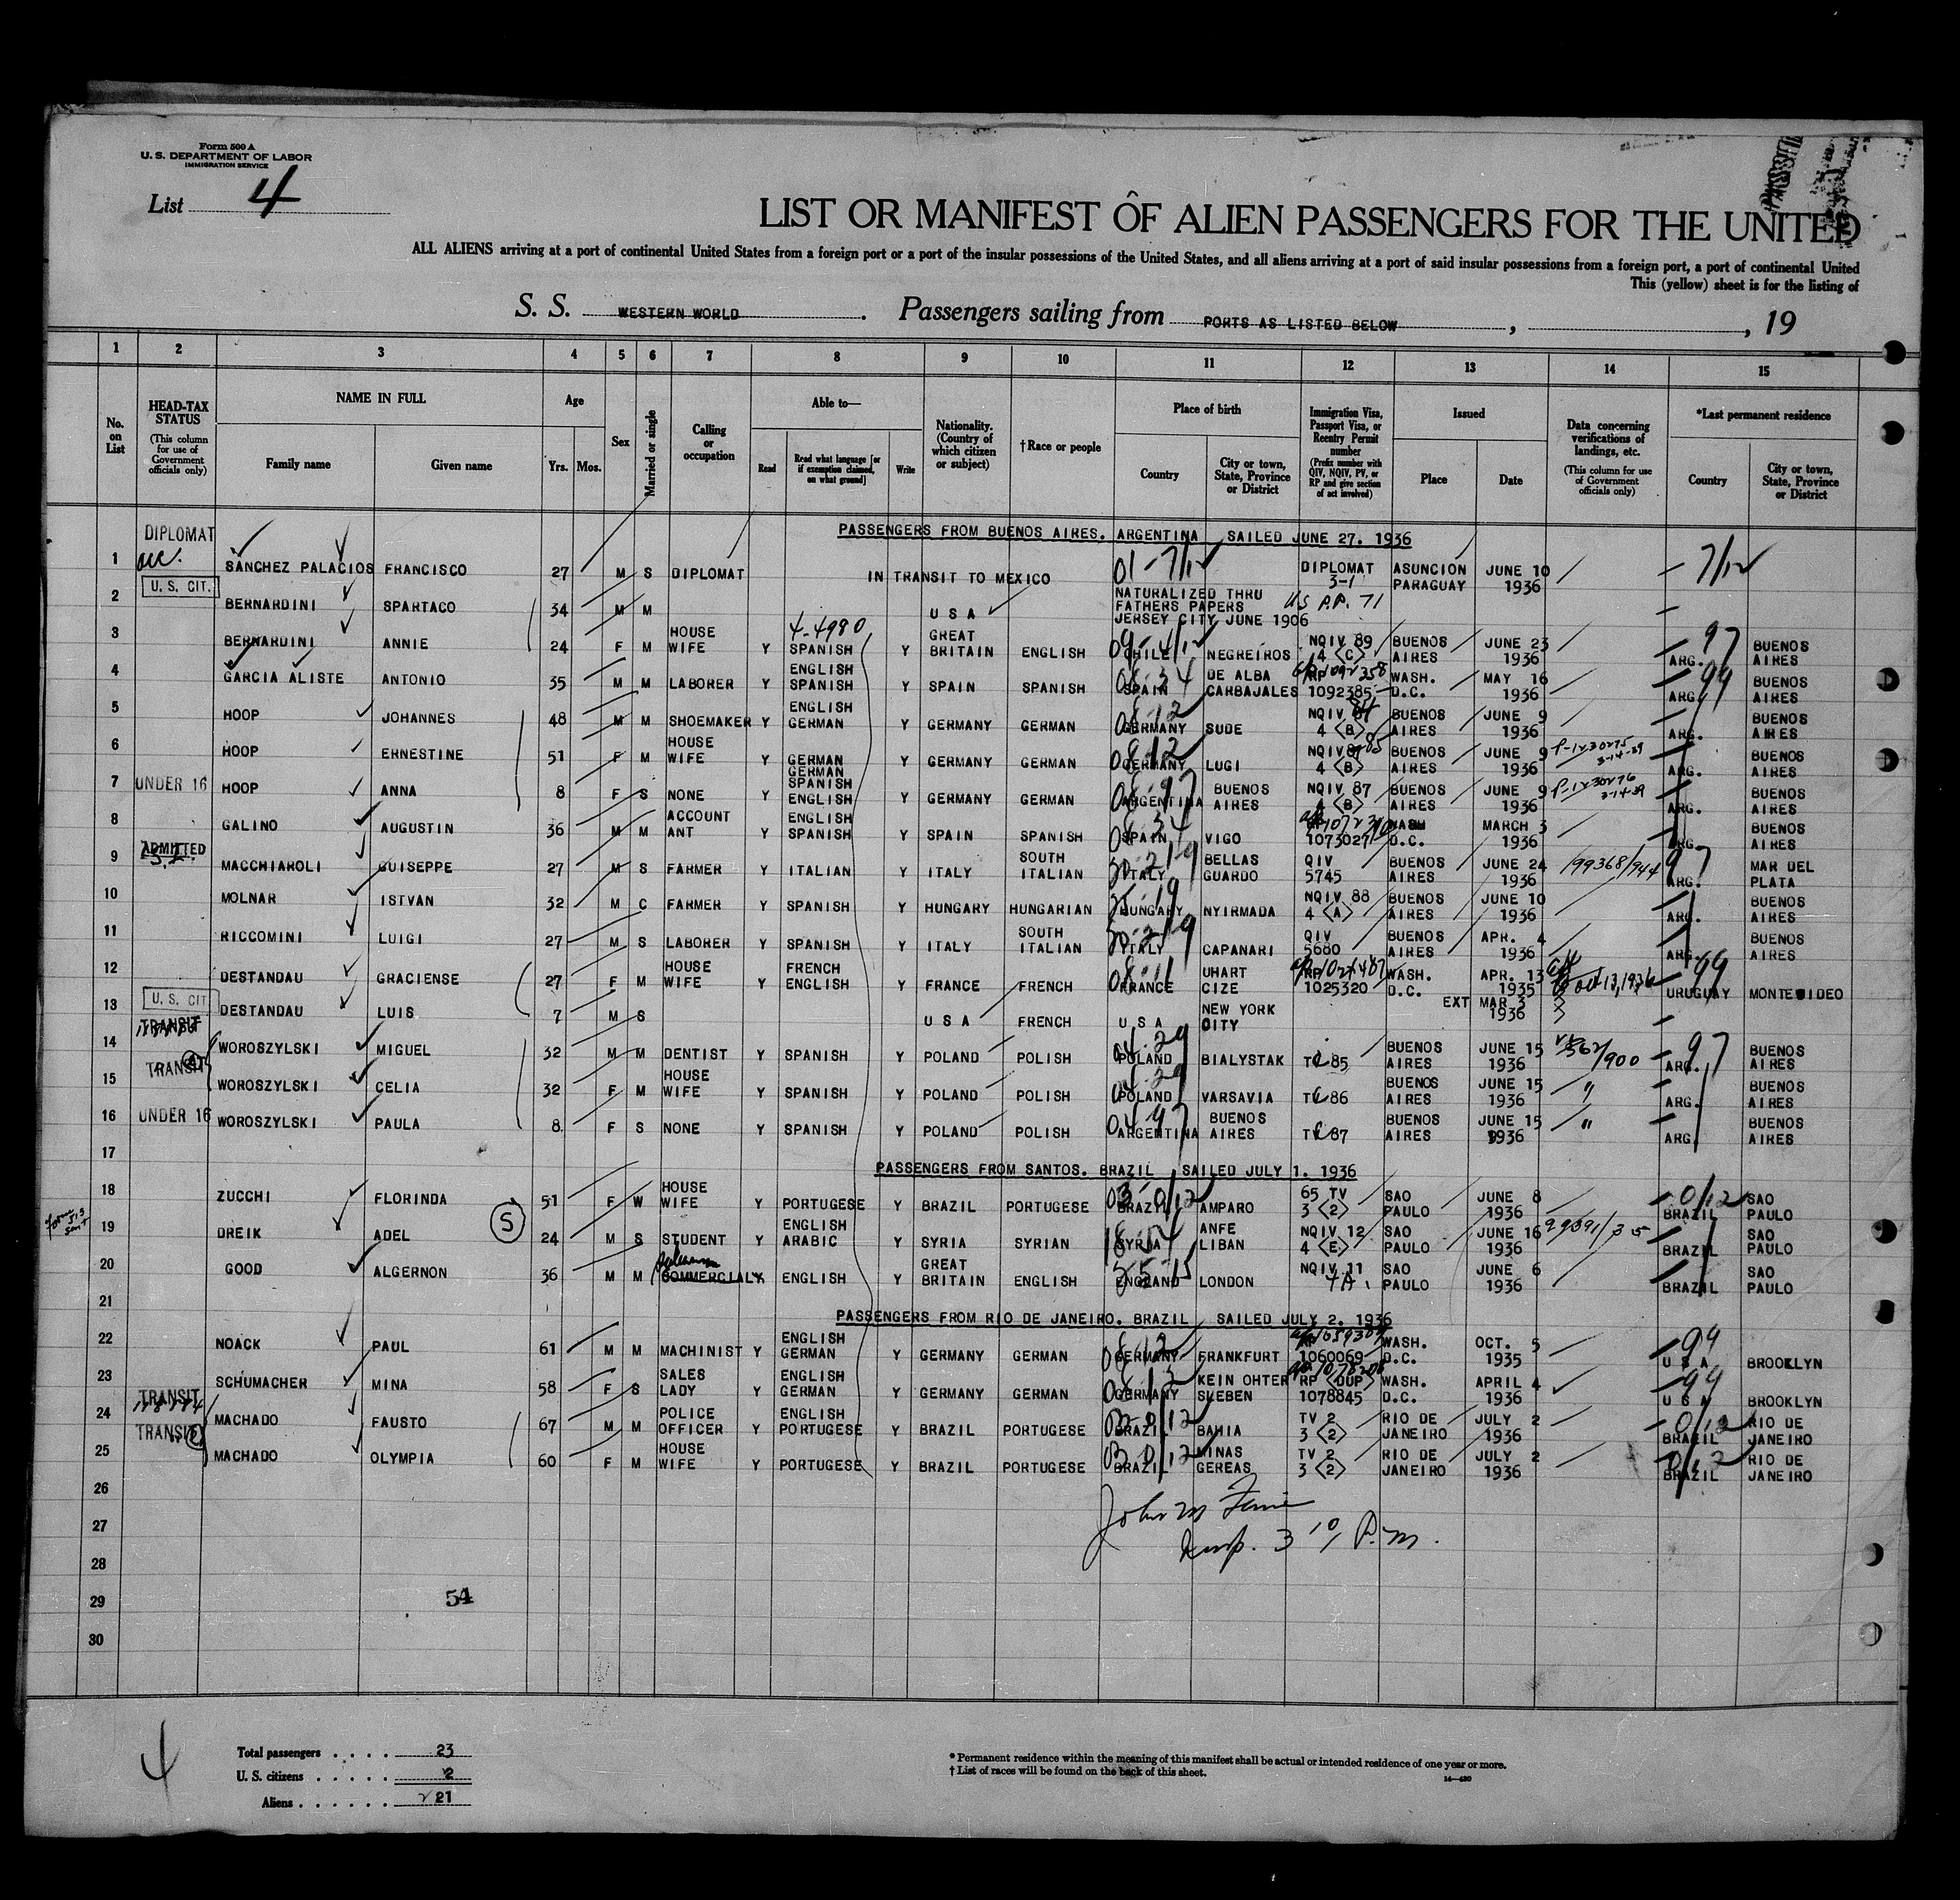 Form 500 A
U. S. DEPARTMENT OF LABOR
IMMIGRATION SERVICE
List 4
LIST OR MANIFEST OF ALIEN PASSENGERS FOR THE UNITED
ALL ALIENS arriving at a port of continental United States from a foreign port or a port of the insular possessions of the United States, and all aliens arriving at a port of said insular possessions from a foreign port, a port of continental United
This (yellow) sheet is for the listing of
S. S. WESTERN WORLD . Passengers sailing from PORTS AS LISTED BELOW , , 19
1 2 3 4 5 6 7 8 9 10 11 12 13 14 15
No. on List
HEAD-TAX STATUS (This column for use of Government officials only)
NAME IN FULL Family name Given name
Age Yrs. Mos.
Sex
Married or single
Calling or occupation
Able to— Read Read what language [or if exemption claimed, on what ground] Write
Nationality. (Country of which citizen or subject)
†Race or people
Place of birth Country City or town, State, Province or District
Immigration Visa, Passport Visa, or Reentry Permit number (Prefix number with QIV, NQIV, PV, or RP and give section of act involved)
Issued Place Date
Data concerning verifications of landings, etc. (This column for use of Government officials only)
*Last permanent residence Country City or town, State, Province or District
PASSENGERS FROM BUENOS AIRES. ARGENTINA SAILED JUNE 27. 1936
1 DIPLOMAT SANCHEZ PALACIOS FRANCISCO 27 M S DIPLOMAT IN TRANSIT TO MEXICO 01-7/12 DIPLOMAT 3-1 ASUNCION PARAGUAY JUNE 10 1936 7/12
2 U. S. CIT. BERNARDINI SPARTACO 34 M M U S A NATURALIZED THRU FATHERS PAPERS JERSEY CITY JUNE 1906 US P.P. 71
3 BERNARDINI ANNIE 24 F M HOUSE WIFE Y 4-4980 SPANISH Y GREAT BRITAIN ENGLISH CHILE NEGREIROS NQIV 89 4 <C> BUENOS AIRES JUNE 23 1936 97 ARG. BUENOS AIRES
4 GARCIA ALISTE ANTONIO 35 M M LABORER Y ENGLISH SPANISH Y SPAIN SPANISH SPAIN DE ALBA CARBAJALES RP 1092385 WASH. D.C. MAY 16 1936 99 ARG. BUENOS AIRES
5 HOOP JOHANNES 48 M M SHOEMAKER Y ENGLISH GERMAN Y GERMANY GERMAN GERMANY SUDE NQIV 4 <B> BUENOS AIRES JUNE 9 1936 ARG. BUENOS AIRES
6 HOOP ERNESTINE 51 F M HOUSE WIFE Y GERMAN Y GERMANY GERMAN GERMANY LUGI NQIV 85 4 <B> BUENOS AIRES JUNE 9 1936 3-14-39 ARG. BUENOS AIRES
7 UNDER 16 HOOP ANNA 8 F S NONE Y GERMAN SPANISH ENGLISH Y GERMANY GERMAN ARGENTINA BUENOS AIRES NQIV 87 4 <B> BUENOS AIRES JUNE 9 1936 3-14-39 ARG. BUENOS AIRES
8 GALINO AUGUSTIN 36 M M ACCOUNT ANT Y ENGLISH SPANISH Y SPAIN SPANISH SPAIN VIGO 1073027 WASH D.C. MARCH 3 1936 ARG. BUENOS AIRES
9 ADMITTED MACCHIAROLI GUISEPPE 27 M S FARMER Y ITALIAN Y ITALY SOUTH ITALIAN ITALY BELLAS GUARDO QIV 5745 BUENOS AIRES JUNE 24 1936 199368/944 97 ARG. MAR DEL PLATA
10 MOLNAR ISTVAN 32 M C FARMER Y SPANISH Y HUNGARY HUNGARIAN HUNGARY NYIRMADA NQIV 88 4 <A> BUENOS AIRES JUNE 10 1936 ARG. BUENOS AIRES
11 RICCOMINI LUIGI 27 M S LABORER Y SPANISH Y ITALY SOUTH ITALIAN ITALY CAPANARI QIV 5680 BUENOS AIRES APR. 4 1936 ARG. BUENOS AIRES
12 DESTANDAU GRACIENSE 27 F M HOUSE WIFE Y FRENCH ENGLISH Y FRANCE FRENCH FRANCE UHART CIZE RP 1025320 WASH. D.C. APR. 13 1935 Oct 13, 1936 99 URUGUAY MONTEVIDEO
13 U. S. CIT. DESTANDAU LUIS 7 M S U S A FRENCH U S A NEW YORK CITY EXT MAR 3 1936
14 TRANSIT WOROSZYLSKI MIGUEL 32 M M DENTIST Y SPANISH Y POLAND POLISH POLAND BIALYSTAK 85 BUENOS AIRES JUNE 15 1936 /900 97 ARG. BUENOS AIRES
15 TRANSIT WOROSZYLSKI CELIA 32 F M HOUSE WIFE Y SPANISH Y POLAND POLISH POLAND VARSAVIA 86 BUENOS AIRES JUNE 15 1936 " ARG. BUENOS AIRES
16 UNDER 16 WOROSZYLSKI PAULA 8 F S NONE Y SPANISH Y POLAND POLISH ARGENTINA BUENOS AIRES 87 BUENOS AIRES JUNE 15 1936 " ARG. BUENOS AIRES
17 PASSENGERS FROM SANTOS. BRAZIL SAILED JULY 1. 1936
18 ZUCCHI FLORINDA 51 F W HOUSE WIFE Y PORTUGESE Y BRAZIL PORTUGESE BRAZIL AMPARO 65 TV 3 <2> SAO PAULO JUNE 8 1936 0/12 BRAZIL SAO PAULO
19 DREIK ADEL S 24 M S STUDENT Y ENGLISH ARABIC Y SYRIA SYRIAN SYRIA ANFE LIBAN NQIV 12 4 <E> SAO PAULO JUNE 16 1936 99391/35 BRAZIL SAO PAULO
20 GOOD ALGERNON 36 M M COMMERCIAL Y ENGLISH Y GREAT BRITAIN ENGLISH ENGLAND LONDON NQIV 11 4A SAO PAULO JUNE 6 1936 BRAZIL SAO PAULO
21 PASSENGERS FROM RIO DE JANEIRO. BRAZIL SAILED JULY 2. 1936
22 NOACK PAUL 61 M M MACHINIST Y ENGLISH GERMAN Y GERMANY GERMAN GERMANY FRANKFURT 1060069 WASH. D.C. OCT. 5 1935 99 U S A BROOKLYN
23 SCHUMACHER MINA 58 F S SALES LADY Y ENGLISH GERMAN Y GERMANY GERMAN GERMANY KEIN OHTER SLEBEN RP <DUP> 1078845 WASH. D.C. APRIL 4 1936 99 U S A BROOKLYN
24 TRANSIT MACHADO FAUSTO 67 M M POLICE OFFICER Y ENGLISH PORTUGESE Y BRAZIL PORTUGESE BRAZIL BAHIA TV 2 3 <2> RIO DE JANEIRO JULY 2 1936 0/12 BRAZIL RIO DE JANEIRO
25 TRANSIT MACHADO OLYMPIA 60 F M HOUSE WIFE Y PORTUGESE Y BRAZIL PORTUGESE BRAZIL MINAS GEREAS TV 2 3 <2> RIO DE JANEIRO JULY 2 1936 0/12 BRAZIL RIO DE JANEIRO
26
27
28
29
30
John M
Insp. 3 10/ P.M.
54
4
Total passengers . . . . 23
U. S. citizens . . . . . 2
Aliens . . . . . . 21
* Permanent residence within the meaning of this manifest shall be actual or intended residence of one year or more.
† List of races will be found on the back of this sheet.
14—420